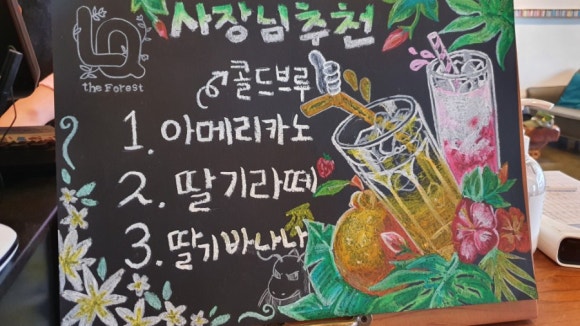 사장님추천
the Forest
콜드브루
1. 아메리카노
2. 딸기라떼
3. 딸기바나나